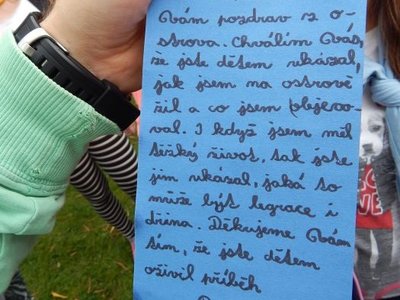 Vám pozdrav z o-
strova. Chválím Vás,
že jste dětem ukázal,
jak jsem na ostrově
žil a co jsem objevo-
val. I když jsem měl
těžký život, tak jste
jim ukázal, jaká to
může být legrace i
dřina. Děkujeme Vám
tím, že jste dětem
oživil příběh